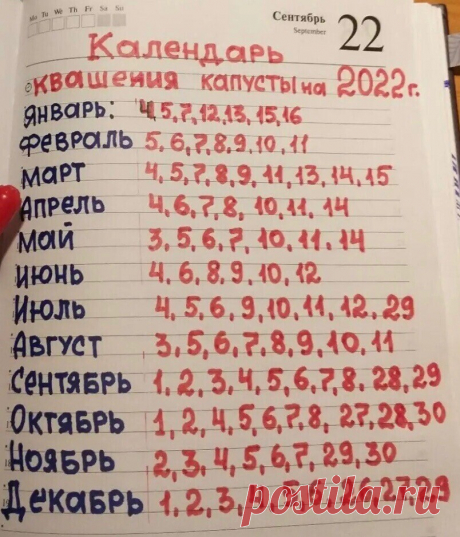 Mo Tu We Th Fr Sa Su
Сентябрь
September
22
Календарь
квашения капусты на 2022г.
январь: 4,5,7,12,13,15,16
Февраль 5,6,7,8,9,10,11
Март 4,5,7,8,9,11,13,14,15
Апрель 4,6,7,8,10,11.14
Май 3,5,6,7,10,11.14
Июнь 4,6,8,9,10,12
Июль 4,5,6,9,10,11,12.29
Август 3,5,6,7,8,9,10,11
Сентябрь 1,2,3,4,5,6,7,8.28,29
Октябрь 1,2,4,5,6,7,8,27,28,30
Ноябрь 2,3,4,5,6,7,29,30
Декабрь 1,2,3, 26,27,29
postila.ru